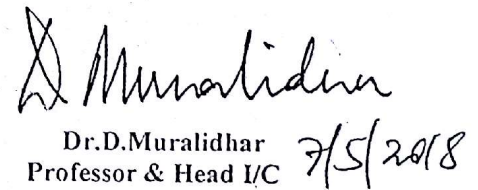 D Muralidhar
Dr.D.Muralidhar
Professor & Head I/C 7/5/2018